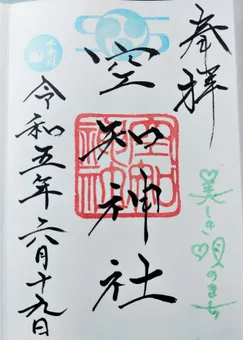 奉拝
美しき唄のまち
空知神社
令和五年六月十九日